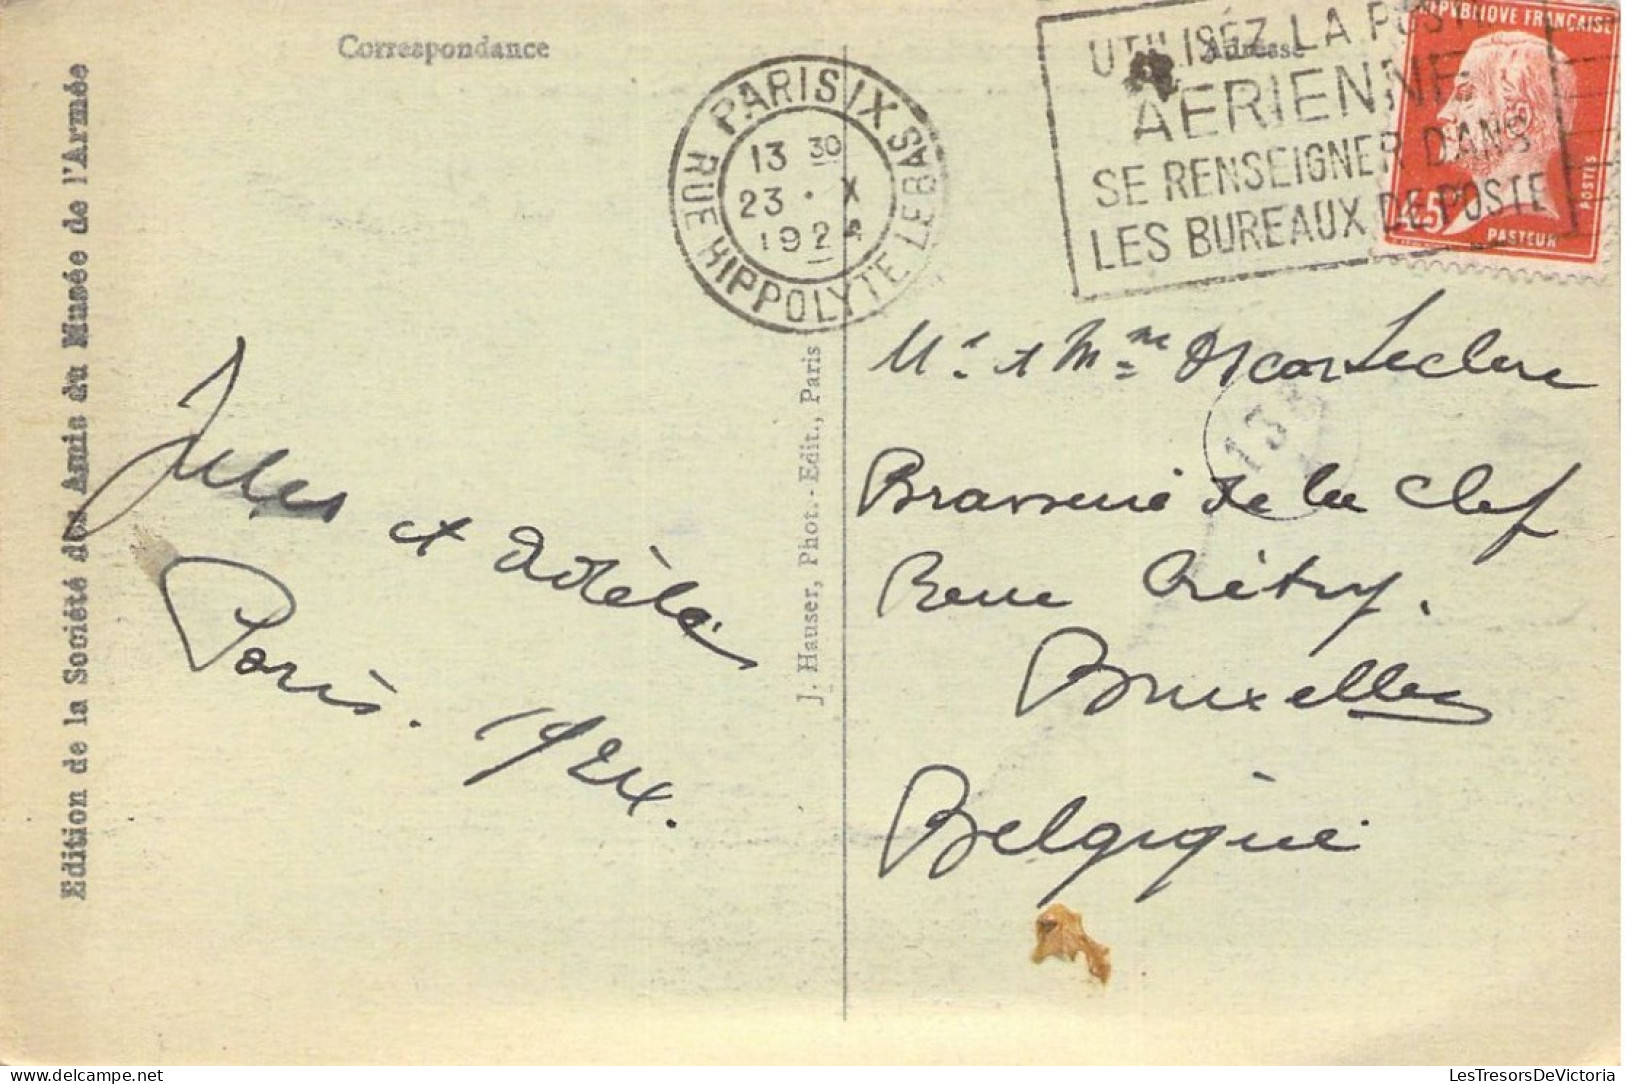 Correspondance
Adresse
Edition de la Société des Amis du Musée de l'Armée
J. Hauser, Phot.-Edit., Paris
PARIS IX
RUE HIPPOLYTE LEBAS
13 30
23 · X
1924
UTILISEZ LA POSTE
AERIENNE
SE RENSEIGNER DANS
LES BUREAUX DE POSTE
REPVBLIQVE FRANÇAISE
45c
POSTES
PASTEUR
Jules et Adèle
Paris. 1924.
Mr. & Mme Oscar Leclerc
Brasserie de la Clef
Rue Grétry.
Bruxelles
Belgique
www.LesTresorsDeVictoria.com
LesTresorsDeVictoria